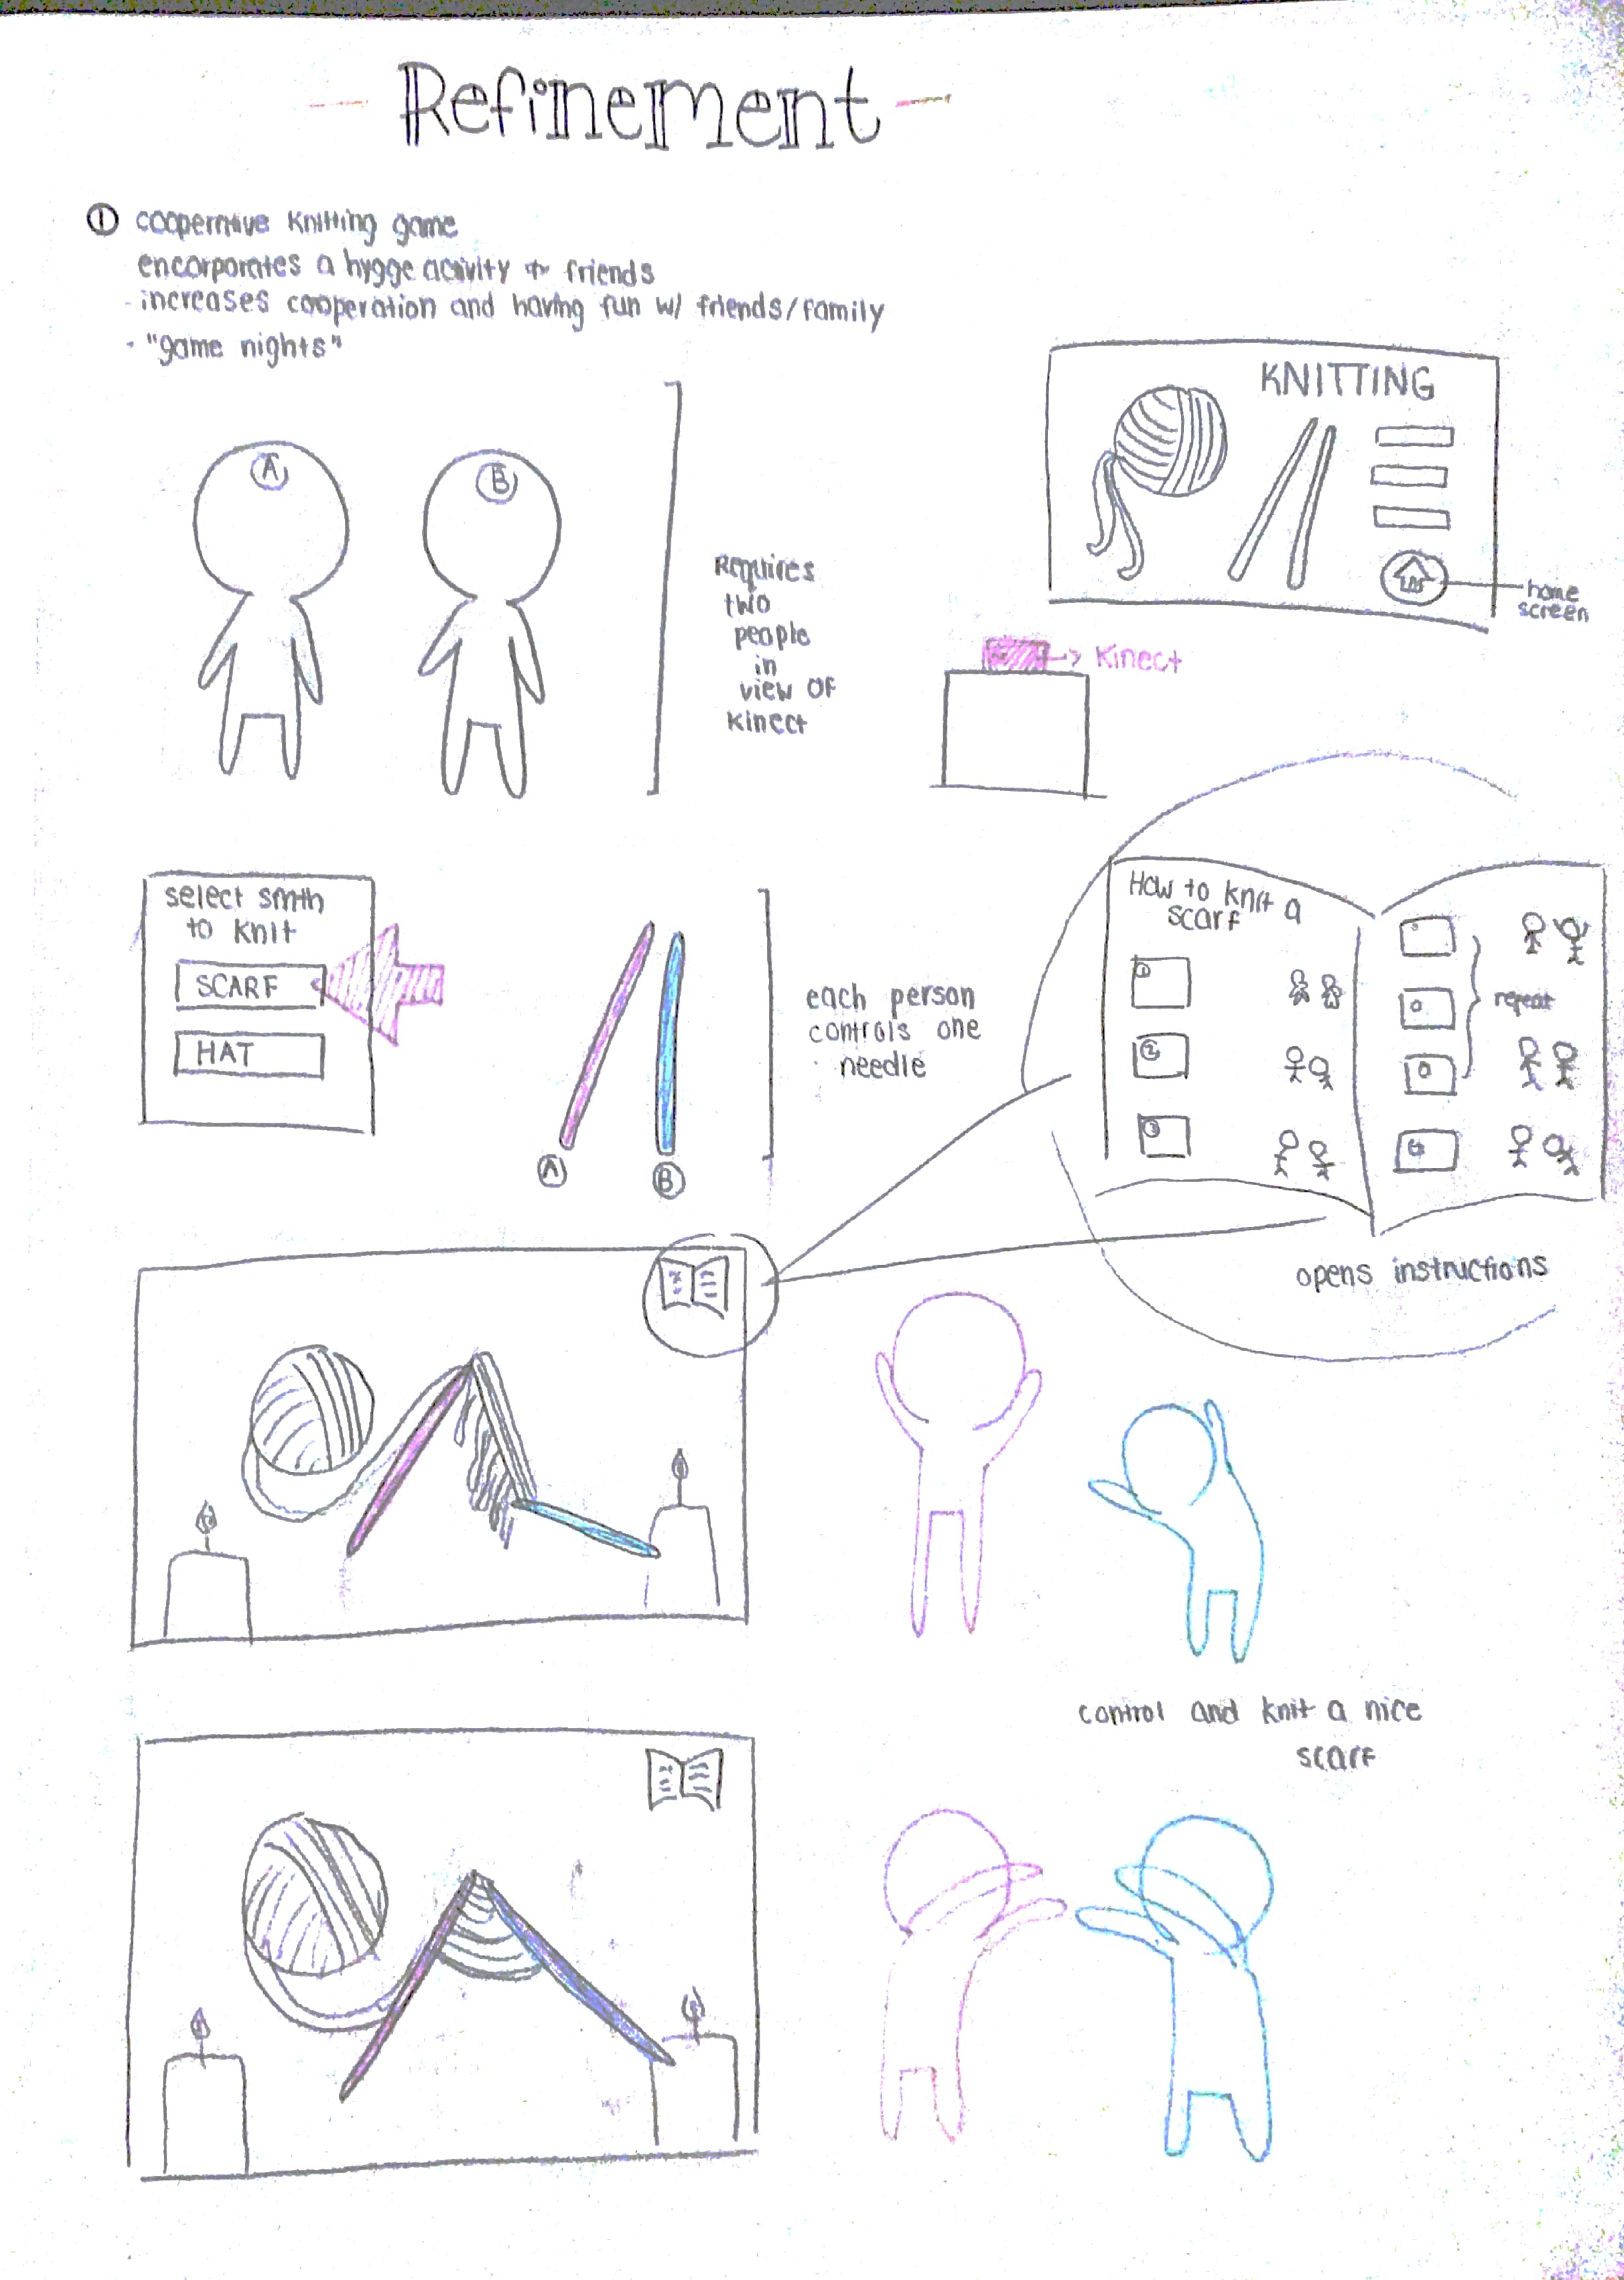 Refinement
① cooperative knitting game
encorporates a hygge activity + friends
- increases cooperation and having fun w/ friends/family
- "game nights"
A
B
Requires
two
people
in
view of
kinect
KNITTING
home
screen
Kinect
select smth
to knit
SCARF
HAT
each person
controls one
needle
A
B
How to knit a
scarf
1
2
3
repeat
opens instructions
control and knit a nice
scarf